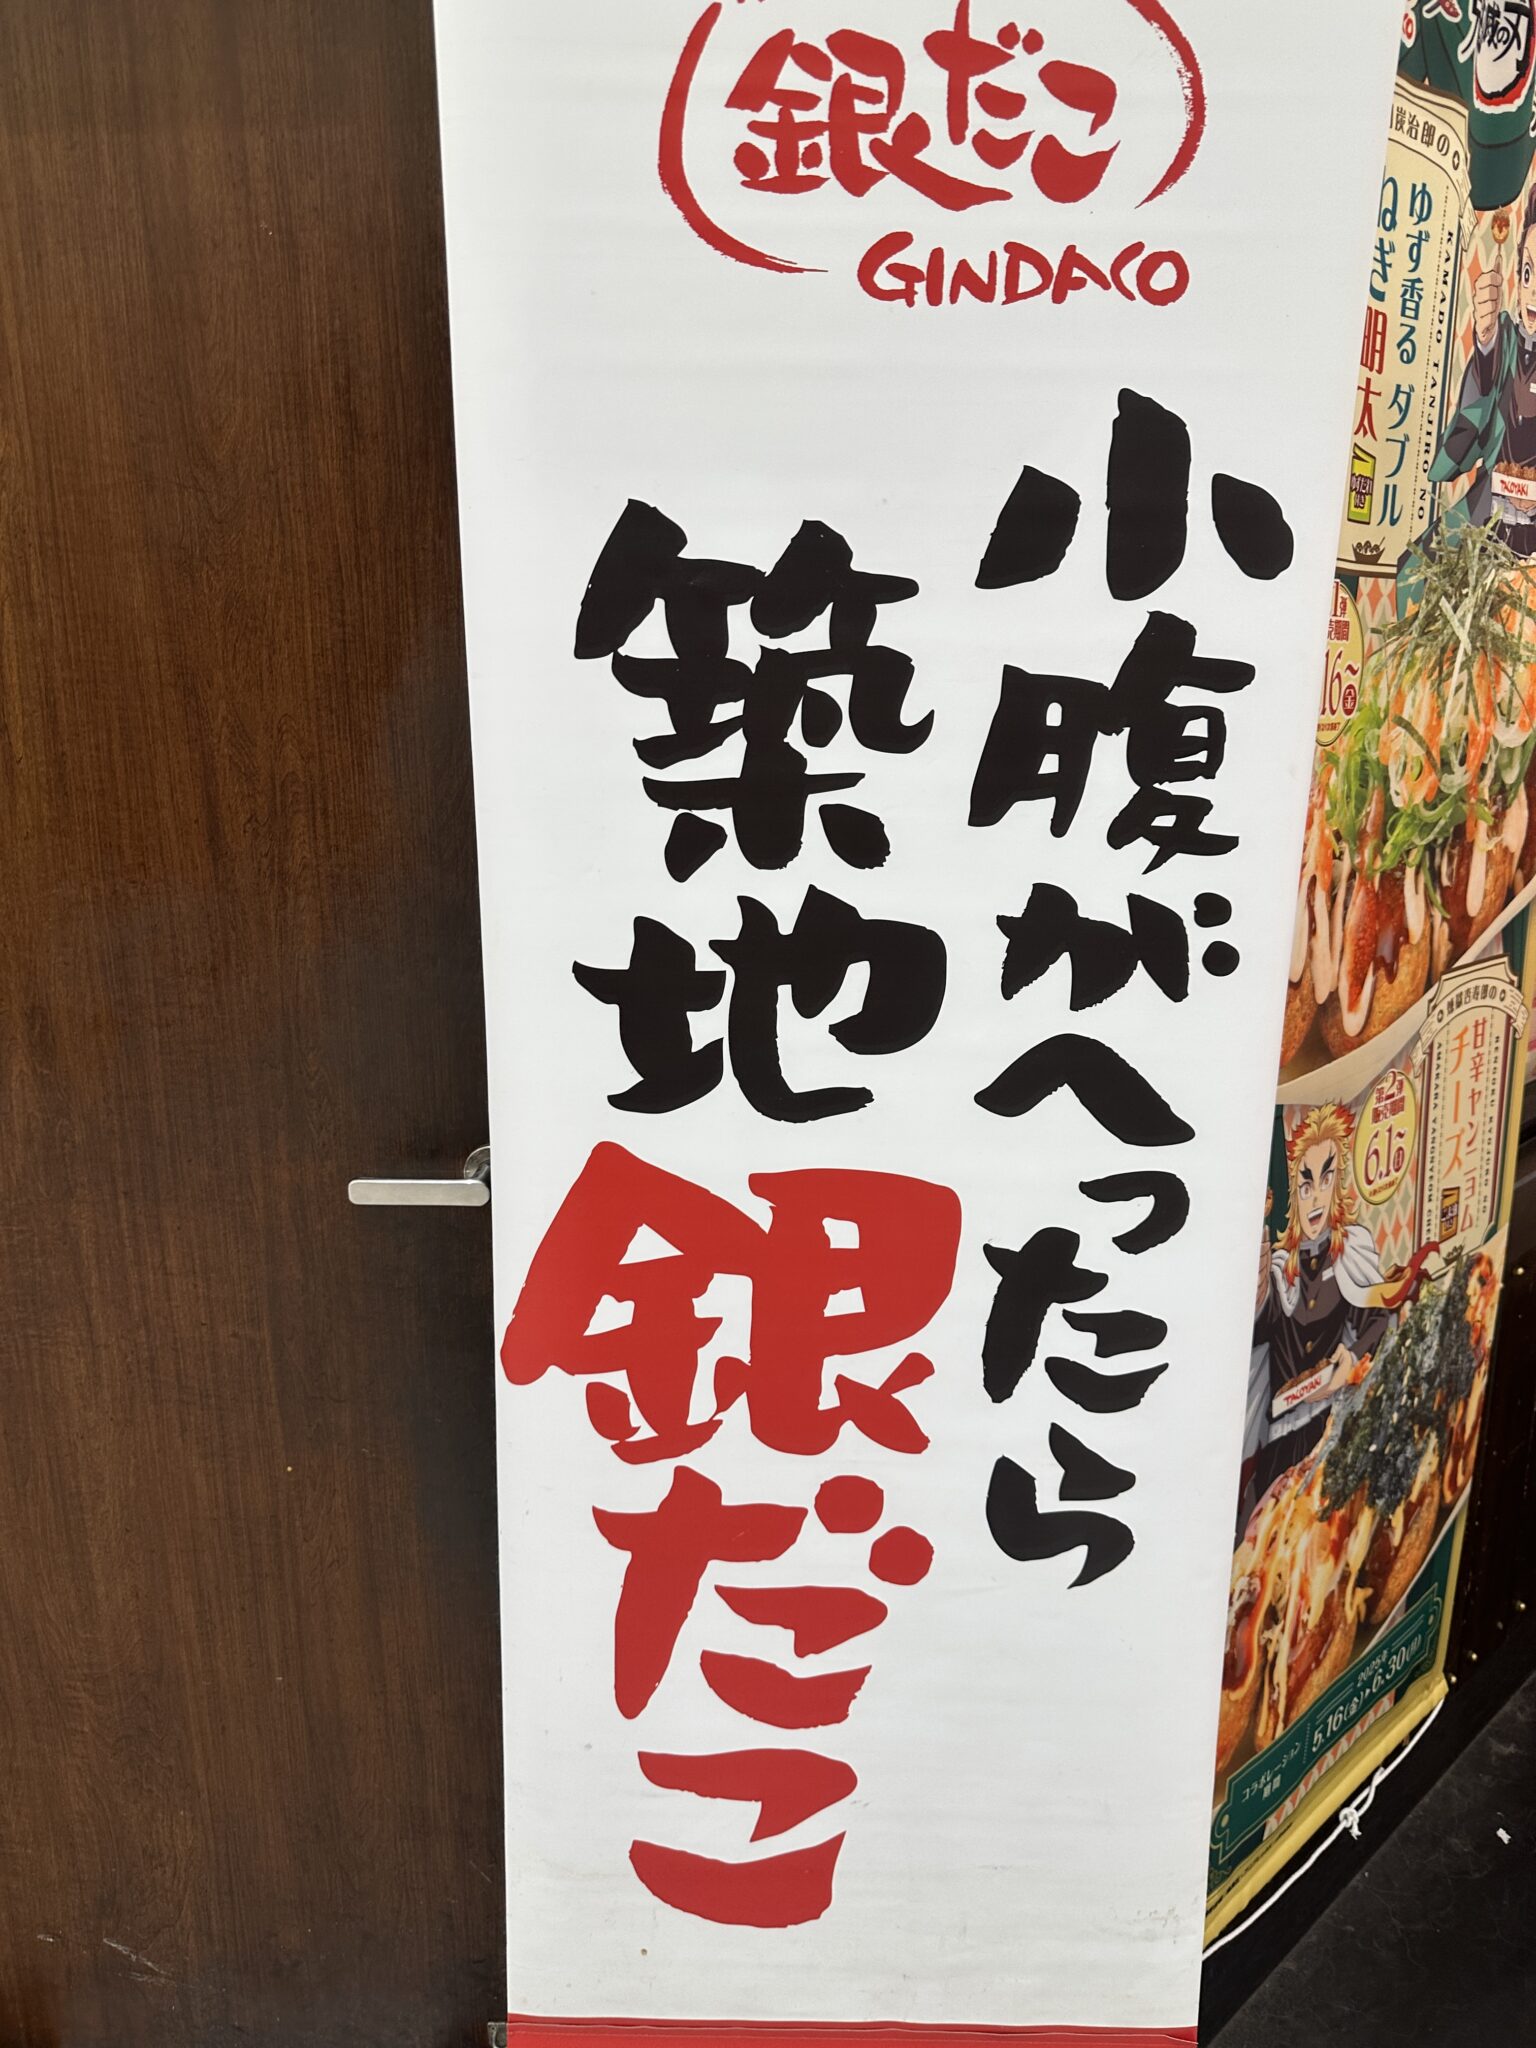 銀だこ
GINDACO
小腹がへったら
築地銀だこ
炭治郎の
ゆず香る ダブル
ねぎ明太
KAMADO TANJIRO NO
16~金
甘辛ヤンニョム
チーズ
RENGOKU KYOJURO NO
AMAKARA YANGNYEOM CHEE
第2弾
販売期間
6.1~日
TACOYAKI
TACOYAKI
コラボレーション
期間
2025年
5.16(金)▸6.30(月)